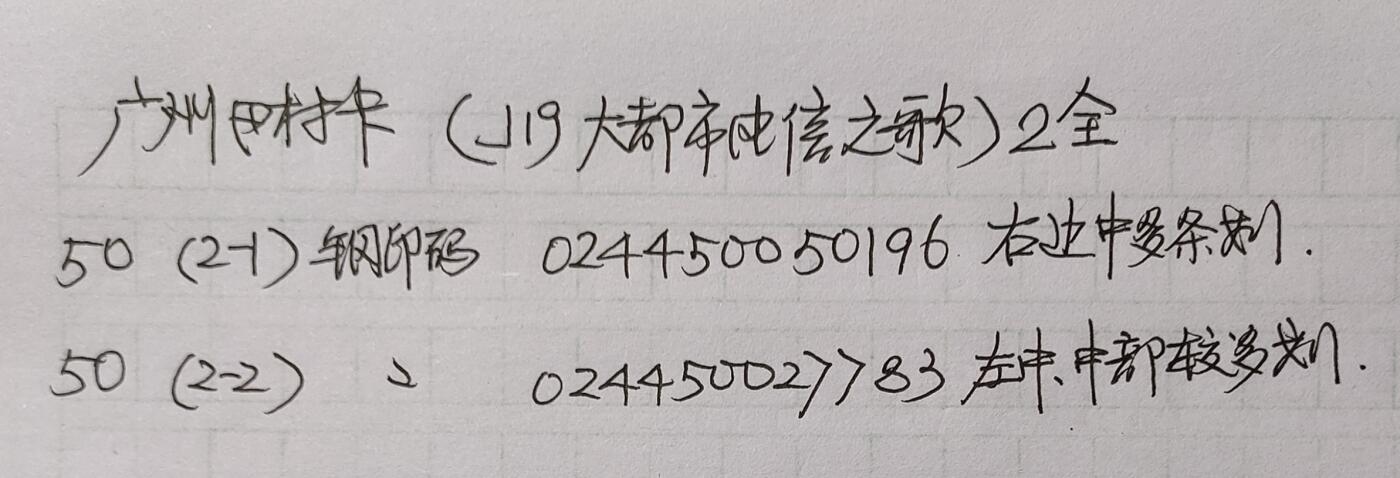 广州田村卡 (J19大都市电信之歌)2全
50 (2-1)钢印码 024450050196 右边中多条划.
50 (2-2) 〃 024450027783 左中、中部较多划.